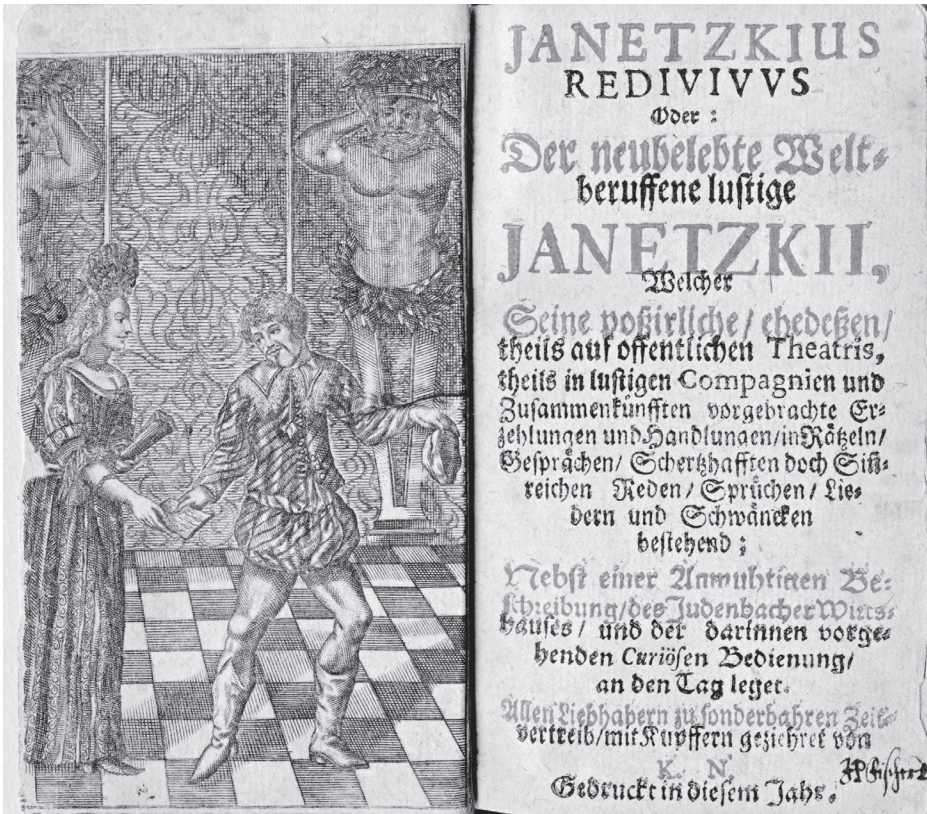 JANETZKIUS
REDIVIVVS
Oder :
Der neubelebte Welt-
beruffene lustige
JANETZKII,
Welcher
Seine poßirliche / ehedeßen /
theils auf offentlichen Theatris,
theils in lustigen Compagnien und
Zusammenkünfften vorgebrachte Er-
zehlungen und Handlungen / in Rätzeln /
Gesprächen / Schertzhafften doch Siñ-
reichen Reden / Sprüchen / Lie-
dern und Schwäncken
bestehend ;
Nebst einer Anmuhtigen Be-
schreibung / des Judenbacher Wirts-
hauses / und der darinnen vorge-
henden Curiösen Bedienung /
an den Tag leget.
Allen Liebhabern zu sonderbahren Zeit-
vertreib / mit Kupffern geziehret von
K. N.
Gedruckt in diesem Jahr.